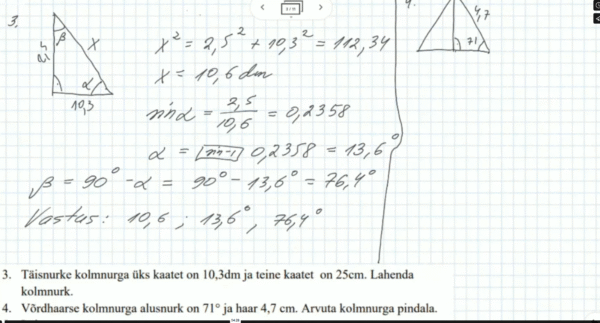 3.
2,5
β
x
α
10,3
x² = 2,5² + 10,3² = 112,34
x = 10,6 dm
sin α = 2,5/10,6 = 0,2358
α = sin-1 0,2358 = 13,6°
β = 90° - α = 90° - 13,6° = 76,4°
Vastus: 10,6 ; 13,6°, 76,4°
4.
4,7
71°
3. Täisnurke kolmnurga üks kaatet on 10,3dm ja teine kaatet on 25cm. Lahenda
kolmnurk.
4. Võrdhaarse kolmnurga alusnurk on 71° ja haar 4,7 cm. Arvuta kolmnurga pindala.